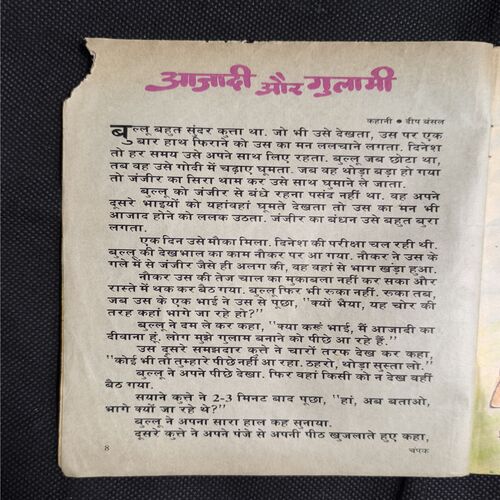 आजादी और गुलामी
कहानी • दीप बंसल
बुल्लू बहुत सुंदर कुत्ता था. जो भी उसे देखता, उस पर एक
बार हाथ फिराने को उस का मन ललचाने लगता. दिनेश
तो हर समय उसे अपने साथ लिए रहता. बुल्लू जब छोटा था,
तब वह उसे गोदी में चढ़ाए घूमता. जब वह थोड़ा बड़ा हो गया
तो जंजीर का सिरा थाम कर उसे साथ घुमाने ले जाता.
बुल्लू को जंजीर से बंधे रहना पसंद नहीं था. वह अपने
दूसरे भाइयों को यहांवहां घूमते देखता तो उस का मन भी
आजाद होने को ललक उठता. जंजीर का बंधन उसे बहुत बुरा
लगता.
एक दिन उसे मौका मिला. दिनेश की परीक्षा चल रही थी.
बुल्लू की देखभाल का काम नौकर पर आ गया. नौकर ने उस के
गले में से जंजीर जैसे ही अलग की, वह वहां से भाग खड़ा हुआ.
नौकर उस की तेज चाल का मुकाबला नहीं कर सका और
रास्ते में थक कर बैठ गया. बुल्लू फिर भी रुका नहीं. रुका तब,
जब उस के एक भाई ने उस से पूछा, ‘‘क्यों भैया, यह चोर की
तरह कहां भागे जा रहे हो?’’
बुल्लू ने दम ले कर कहा, ‘‘क्या करूं भाई, मैं आजादी का
दीवाना हूं. लोग मुझे गुलाम बनाने को पीछे आ रहे हैं.’’
उस दूसरे समझदार कुत्ते ने चारों तरफ देख कर कहा,
‘‘कोई भी तो तुम्हारे पीछे नहीं आ रहा. ठहरो, थोड़ा सुस्ता लो.’’
बुल्लू ने अपने पीछे देखा. फिर वहां किसी को न देख वहीं
बैठ गया.
सयाने कुत्ते ने 2-3 मिनट बाद पूछा, ‘‘हां, अब बताओ,
भागे क्यों जा रहे थे?’’
बुल्लू ने अपना सारा हाल कह सुनाया.
दूसरे कुत्ते ने अपने पंजे से अपनी पीठ खुजलाते हुए कहा,
8
चंपक